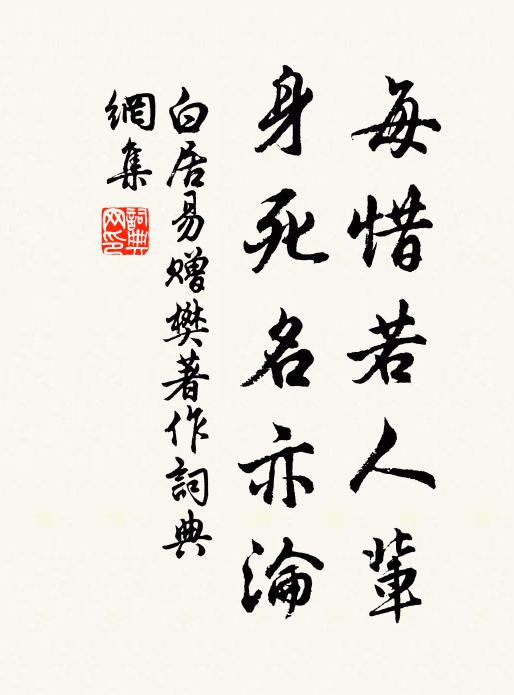 每惜若人輩
身死名亦淪
白居易贈樊著作詞典
網集
詞典
网印